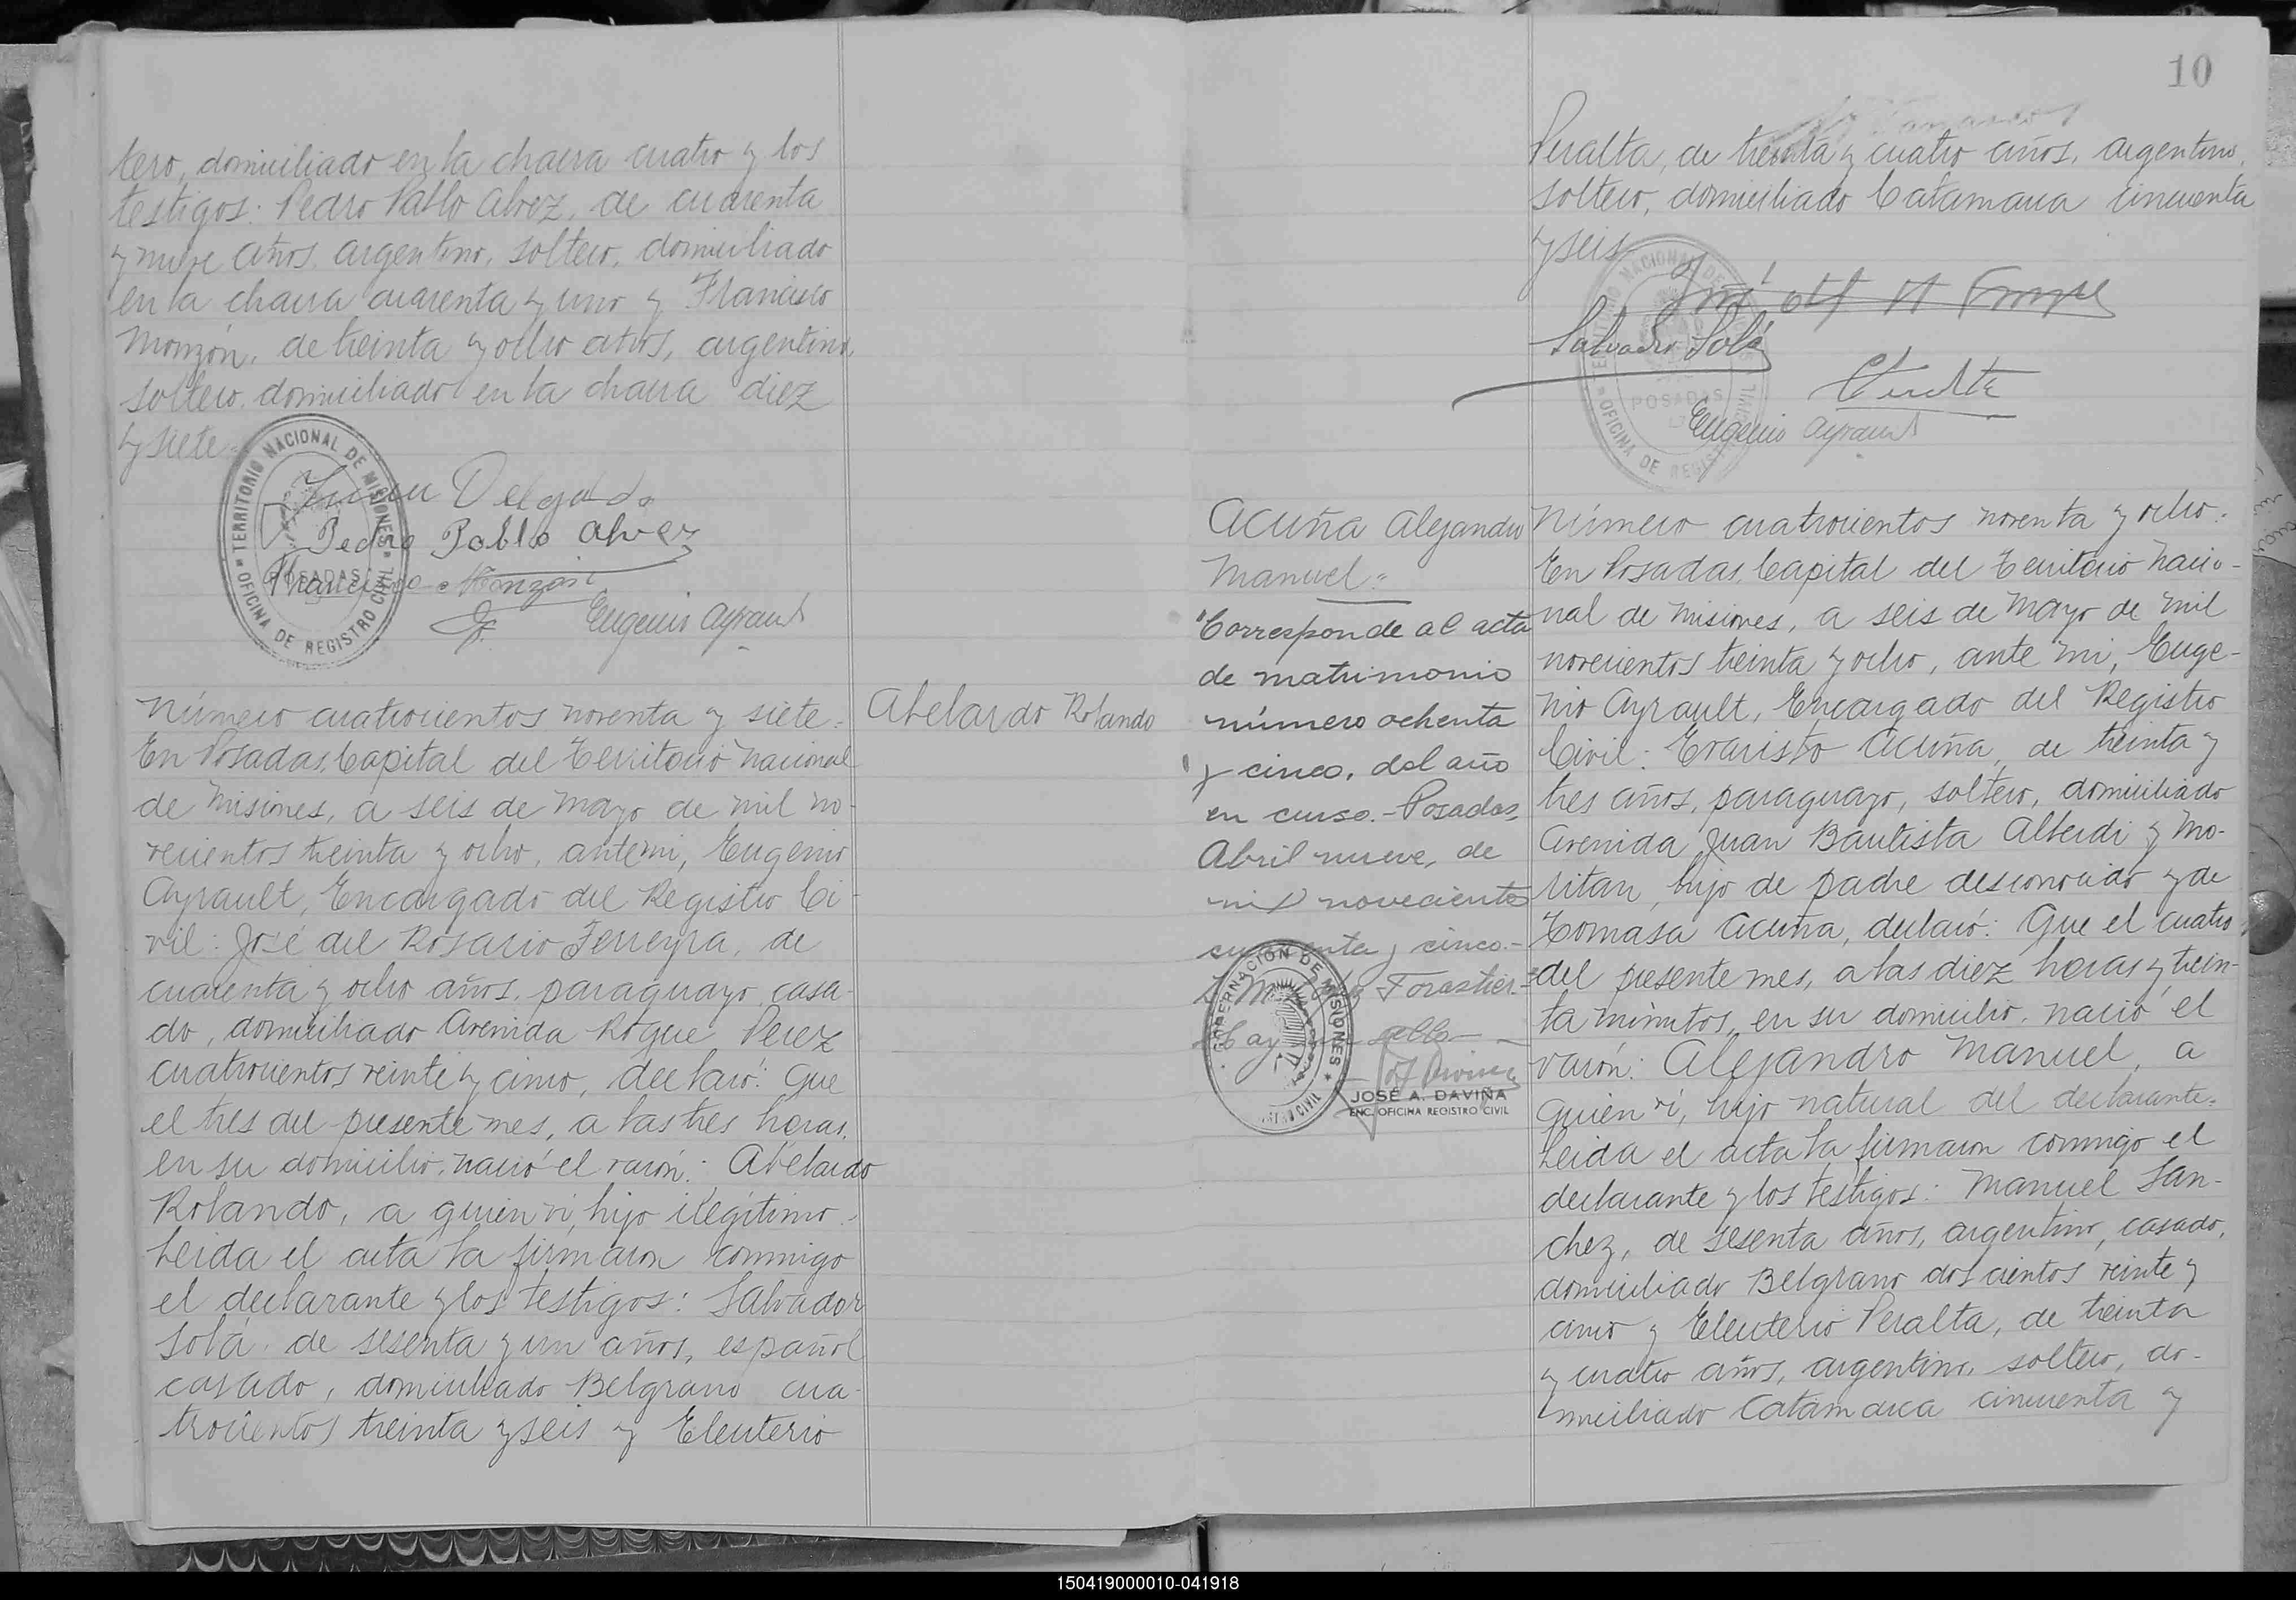 tero, domiciliado en la chacra cuatro y los
testigos: Pedro Pablo Alvez, de cuarenta
y nueve años, argentino, soltero, domiciliado
en la chacra cuarenta y uno y Francisco
Monzón, de treinta y ocho años, argentino,
soltero, domiciliado en la chacra diez
y siete.
TERRITORIO NACIONAL DE MISIONES
OFICINA DE REGISTRO CIVIL
POSADAS
Delgado
Pedro Pablo Alvez
Francisco Monzón
Eugenio Ayrault
Número cuatrocientos noventa y siete.
En Posadas, Capital del Territorio Nacional
de Misiones, a seis de Mayo de mil no-
vecientos treinta y ocho, ante mi, Eugenio
Ayrault, Encargado del Registro Ci-
vil: José del Rosario Ferreyra, de
cuarenta y ocho años, paraguayo, casa-
do, domiciliado Avenida Roque Perez
cuatrocientos veinte y cinco, declaró: Que
el tres del presente mes, a las tres horas,
en su domicilio, nació el varón: Abelardo
Rolando, a quien ví, hijo ilegítimo.
Leida el acta la firmaron conmigo
el declarante y los testigos: Salvador
Solá, de sesenta y un años, español
casado, domiciliado Belgrano cua-
trocientos treinta y seis y Eleuterio
Abelardo Rolando
10
Peralta, de treinta y cuatro años, argentino,
soltero, domiciliado Catamarca cincuenta
y seis
TERRITORIO NACIONAL DE MISIONES
OFICINA DE REGISTRO CIVIL
POSADAS
Salvador Solá
Eugenio Ayrault
Acuña Alejandro
Manuel=
Corresponde al acta
de matrimonio
número ochenta
y cinco, del año
en curso.- Posadas,
Abril nueve, de
mil novecientos
cuarenta y cinco.-
Forastier.-
Hay un sello
GOBERNACION DE MISIONES
JOSÉ A. DAVIÑA
ENC. OFICINA REGISTRO CIVIL
Número cuatrocientos noventa y ocho.
En Posadas, Capital del Territorio Nacio-
nal de Misiones, a seis de Mayo de mil
novecientos treinta y ocho, ante mi, Euge-
nio Ayrault, Encargado del Registro
Civil: Evaristo Acuña, de treinta y
tres años, paraguayo, soltero, domiciliado
Avenida Juan Bautista Alberdi y Mo-
ritan, hijo de padre desconocido y de
Tomasa Acuña, declaró: Que el cuatro
del presente mes, a las diez horas y trein-
ta minutos, en su domicilio, nació el
varón: Alejandro Manuel, a
quien ví, hijo natural del declarante.
Leida el acta la firmaron conmigo el
declarante y los testigos: Manuel San-
chez, de sesenta años, argentino, casado,
domiciliado Belgrano doscientos veinte y
cinco y Eleuterio Peralta, de treinta
y cuatro años, argentino, soltero, do-
miciliado Catamarca cincuenta y
150419000010-041918